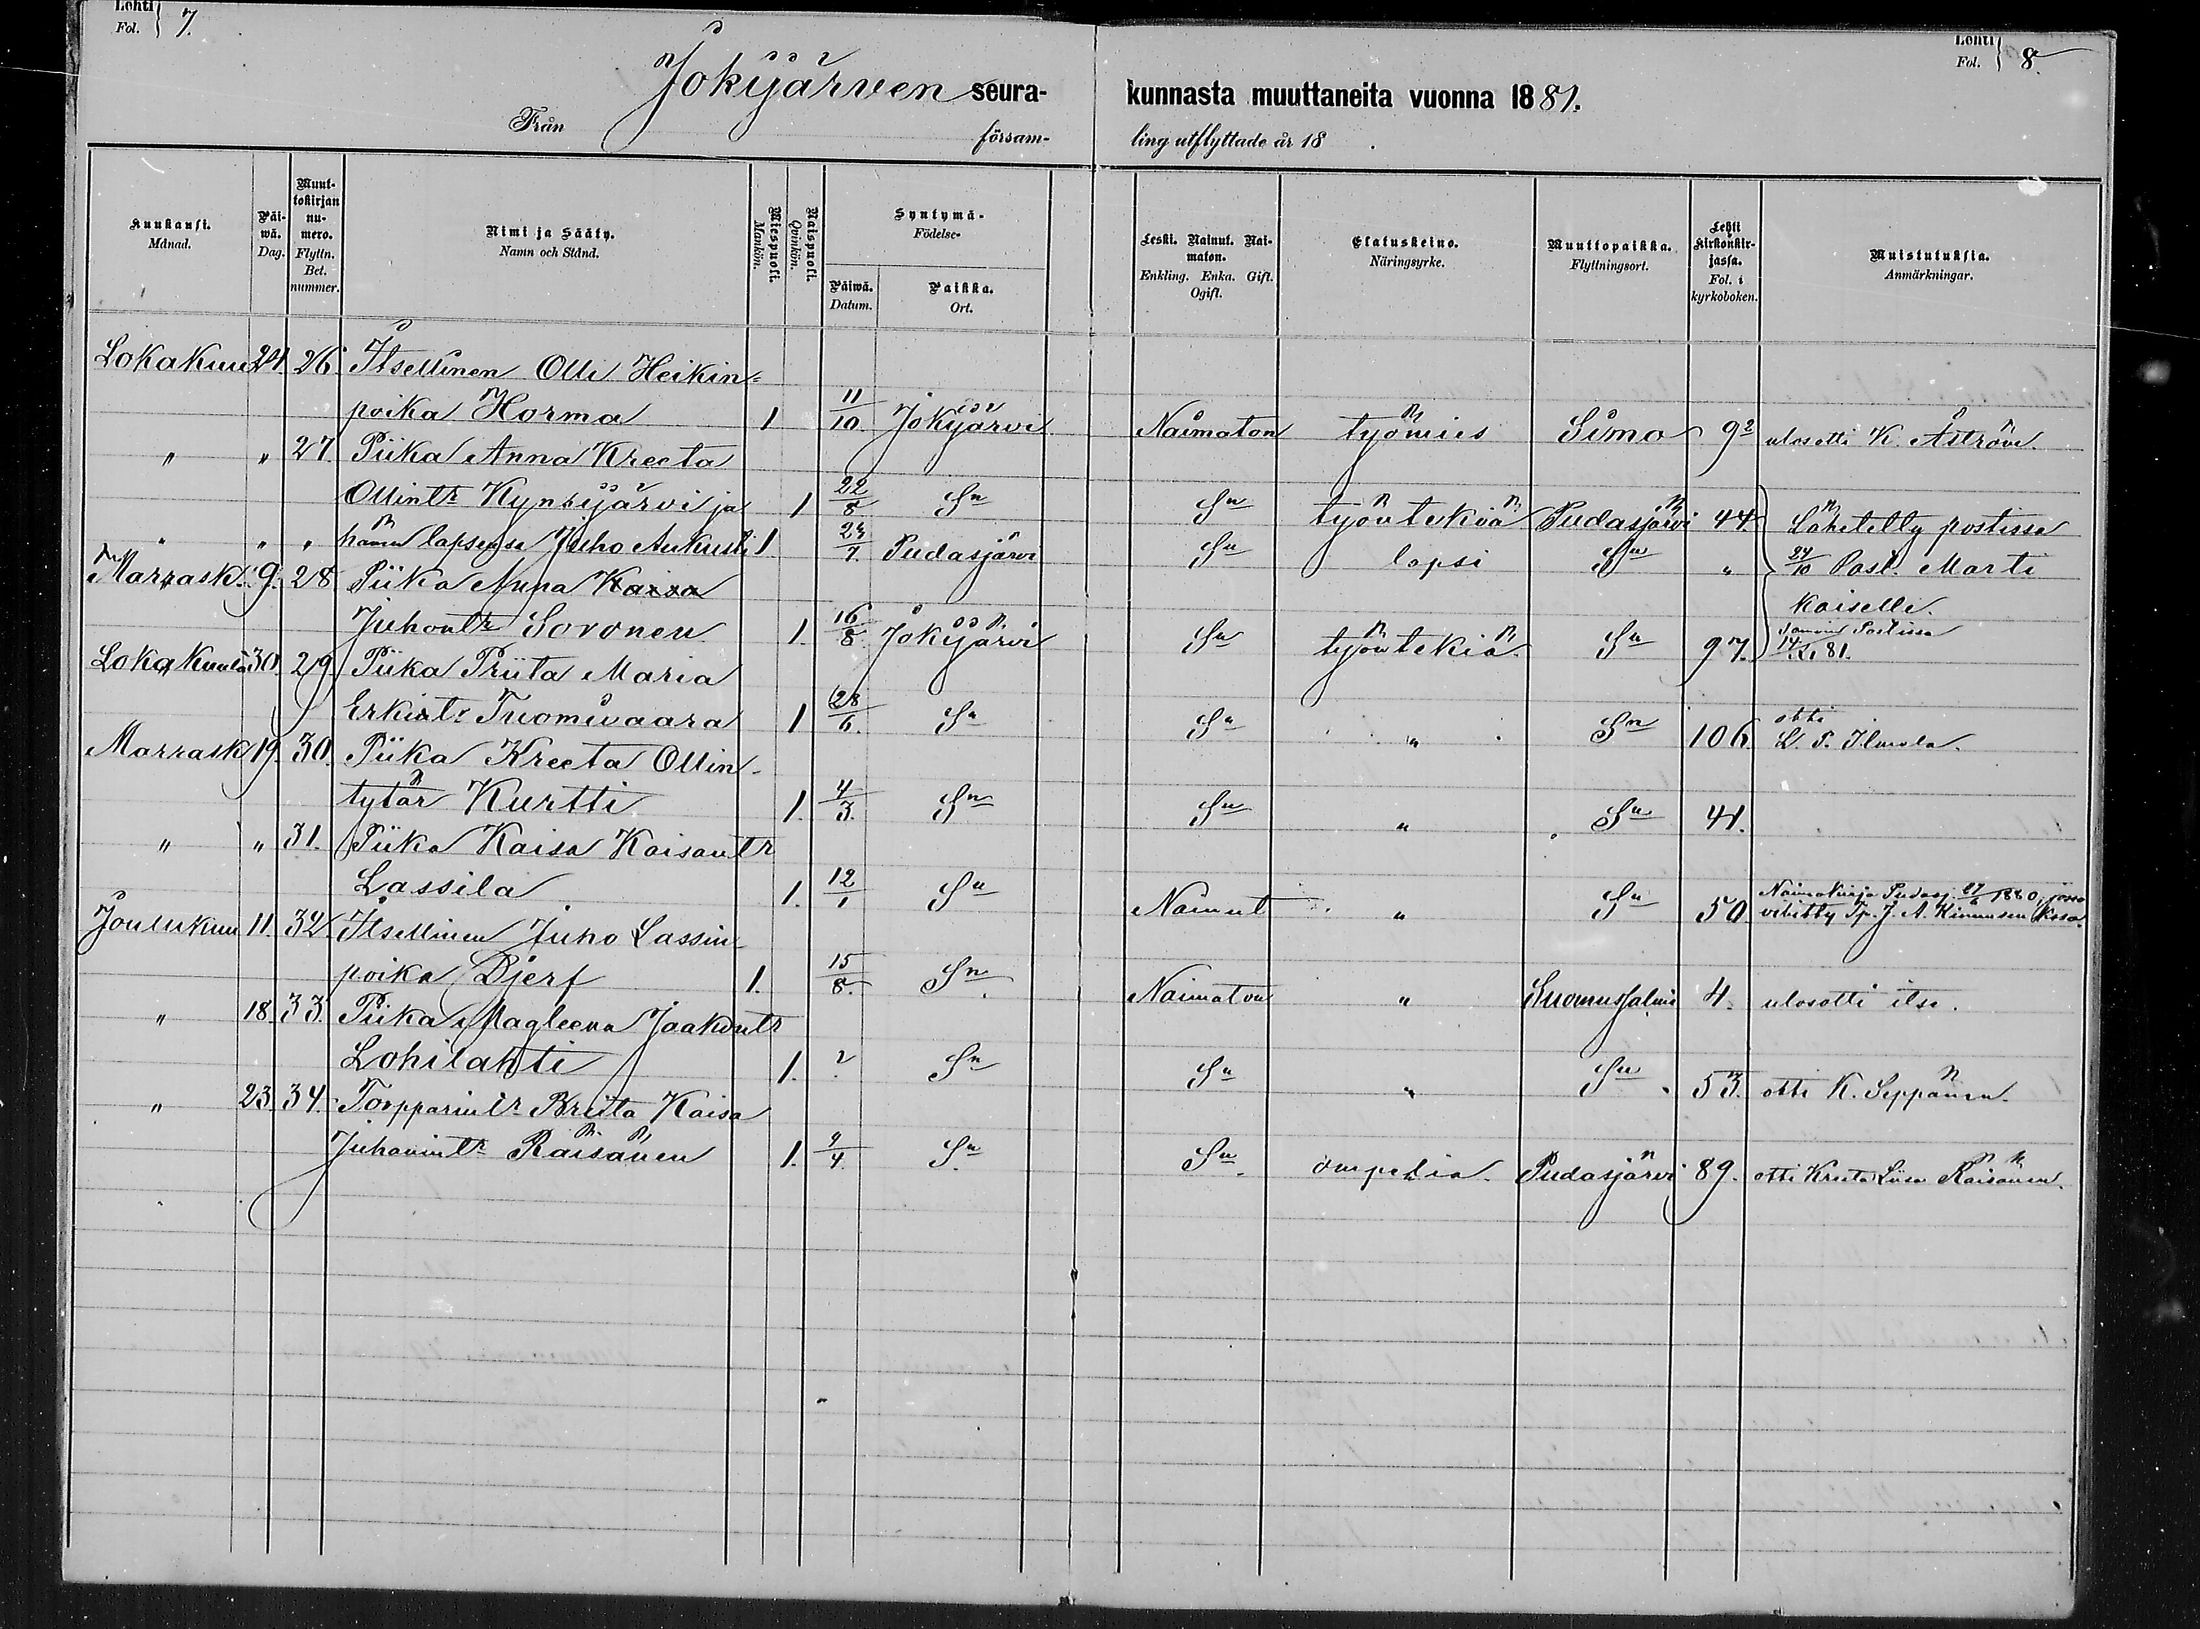 Lehti Fol. 7.
Lehti Fol. 8.
Jokijärven seura- kunnasta muuttaneita vuonna 1881.
Från församling utflyttade år 18 .
Kuukausi. Månad.
Päiwä. Dag.
Muuttokirjan numero. Flyttn. Bet. nummer.
Nimi ja Sääty. Namn och Stånd.
Miespuoli. Mankön.
Naispuoli. Qvinkön.
Syntymä- Födelse-
Päiwä. Datum.
Paikka. Ort.
Leski. Nainut. Naimaton. Enkling. Enka. Gift. Ogift.
Elatuskeino. Näringsyrke.
Muuttopaikka. Flyttningsort.
Lehti kirkonkirjassa. Fol. i kyrkoboken.
Muistutuksia. Anmärkningar.
Lokakuu 24 26. Itsellinen Olli Heikin-
poika Horma 1 11/10. Jokijärvi Naimaton työmies Simo 92 ulosotti K. Åström.
" " 27. Piika Anna Kreeta
Ollintr Kynsijärvi ja 1 22/8 Sn Sn työntekiä Pudasjärvi 44 Lähetetty postissa
" " " hänen lapsensa Juho Aukusti 1 24/7. Pudasjärvi Sn lapsi Sn " 24/10 Past. Marti
Marrask. 9. 28. Piika Anna Kaisa
kaiselle.
Juhontr Soronen 1. 16/8. Jokijärvi Sn työntekiä. Sn 97. Samoin Postissa 14/XI 81.
Lokakuuta 30. 29. Piika Priita Maria
Erkintr Tuomivaara 1 28/6. Sn Sn " Sn 106 otti L. P. Ilmola.
Marrask 19. 30. Piika Kreeta Ollin-
tytär Kurtti 1. 4/3. Sn Sn " Sn 41.
" " 31. Piika Kaisa Kaisantr
Lassila 1. 12/1 Sn Nainut " Sn 50. Naimakirja Pudasj. 27/6 1880, jossa
vihitty Tp. J. A. Kinnusen kssa.
Joulukuu 11. 32. Itsellinen Juho Lassin-
poika Djerf 1. 15/8. Sn. Naimaton " Suomussalmi 4. ulosotti itse.
" 18. 33. Piika Magleena Jaakontr
Lohilahti 1. ? Sn Sn " Sn 53. otti K. Seppänen.
" 23. 34. Torpparintr Briita Kaisa
Juhanintr Räisänen 1. 9/4. Sn. Sn. ompelia. Pudasjärvi 89. otti Kreeta Liisa Räisänen.